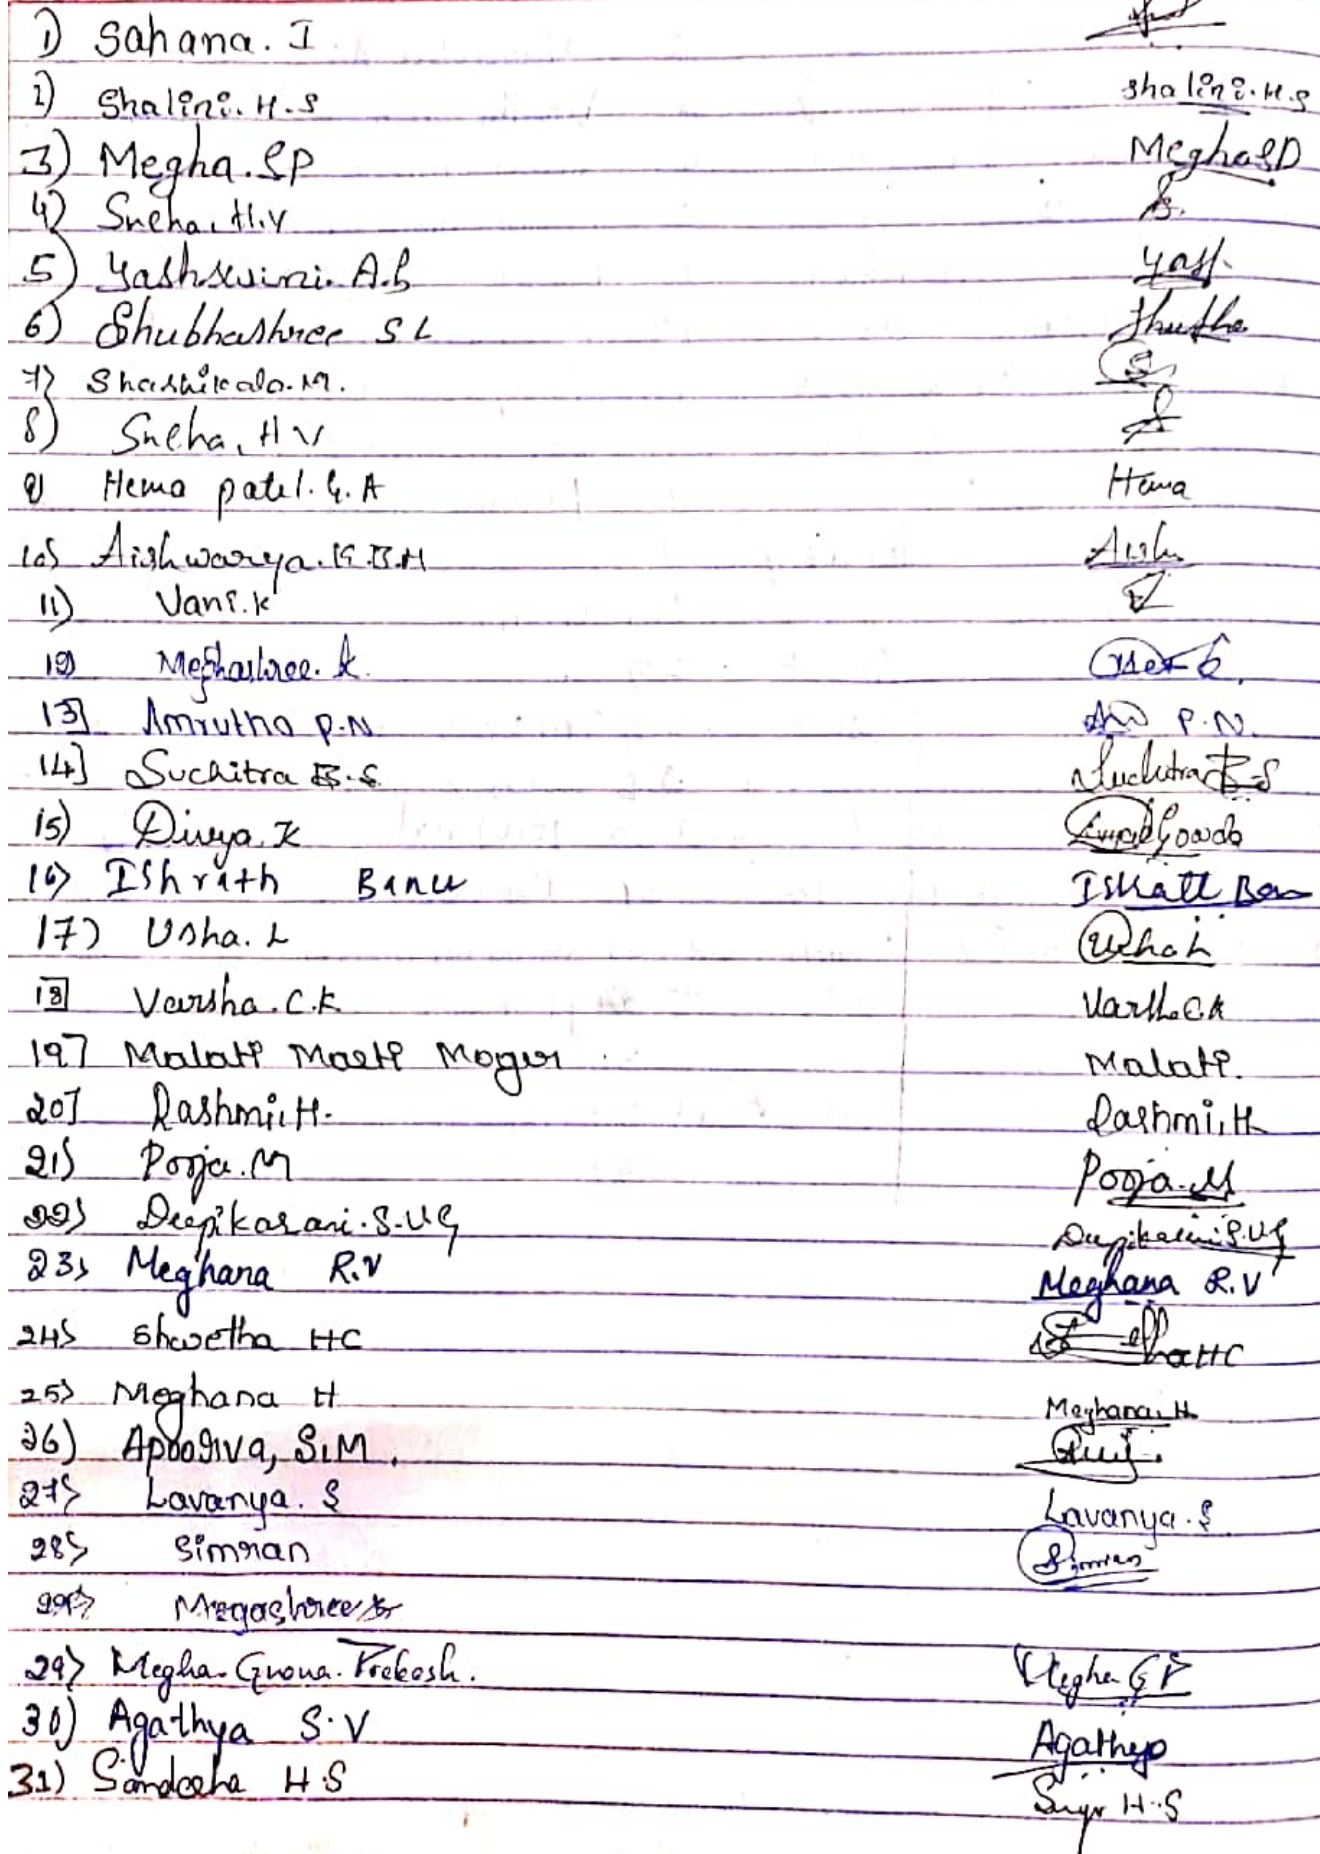 1) Sahana. I
2) Shalini. H.S shalini.H.S
3) Megha. SP Megha
4) Sneha. H.V S.
5) Yashswini. A.B Yash.
6) Shubhashree S L Shubha
7) Shashikala. M. S
8) Sneha, H V S
9) Hema patel. G. A Hema
10) Aishwarya. K.B.M Aish
11) Vani. K V
12) Meghashree. K.
13] Amrutha P.N. P.N.
14] Suchitra B.S. Suchitra B-S
15) Divya. K Gowda
16) Ishrath Banu
17) Usha. L Usha L
18] Varsha. C.K Varsh.C.K
19] Malati Masti Moger Malati.
20] Rashmi.H. Rashmi.H
21) Pooja. M Pooja.M
22) Deepikarani. S.U.G Deepikarani S.U.G
23) Meghana R.V Meghana R.V
24) Shwetha HC HC
25) Meghana H Meghana. H
26) Apoorva, S.M.
27) Lavanya. S Lavanya. S
28) Simran Simran
29) Megashree
29) Megha. Guona. Prakash. Megha G P
30) Agathya S.V Agathya
31) H.S H.S